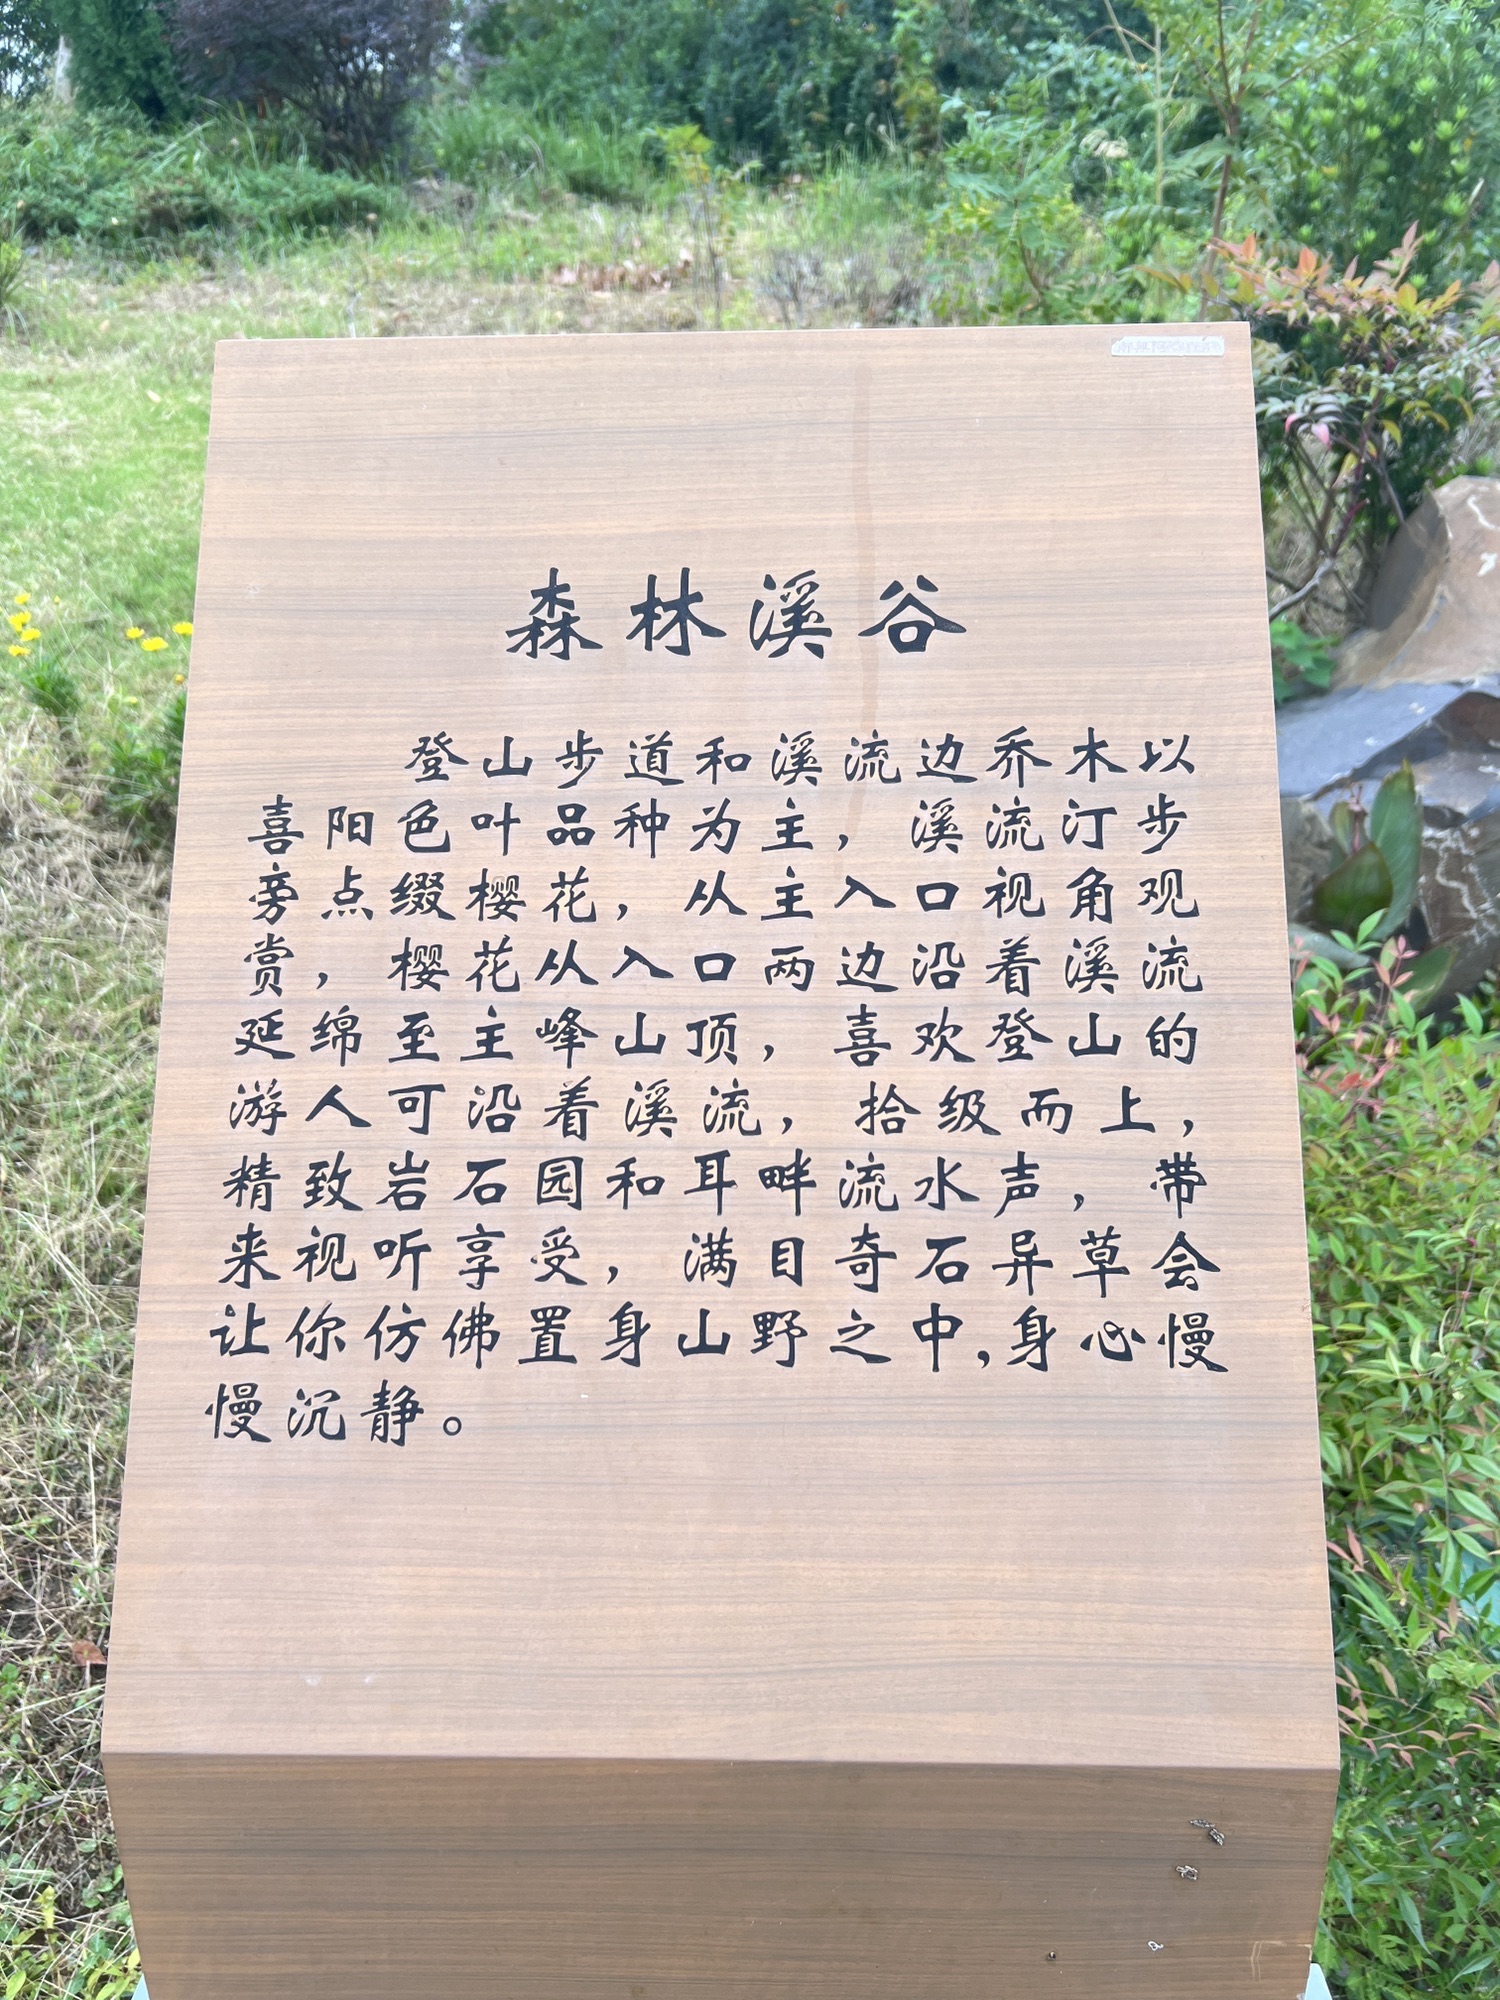 森林溪谷
登山步道和溪流边乔木以
喜阳色叶品种为主，溪流汀步
旁点缀樱花，从主入口视角观
赏，樱花从入口两边沿着溪流
延绵至主峰山顶，喜欢登山的
游人可沿着溪流，拾级而上，
精致岩石园和耳畔流水声，带
来视听享受，满目奇石异草会
让你仿佛置身山野之中，身心慢
慢沉静。